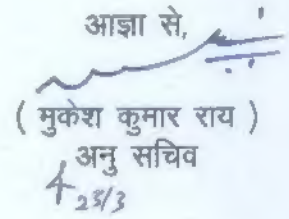 आज्ञा से,
( मुकेश कुमार राय )
अनु सचिव
25/3